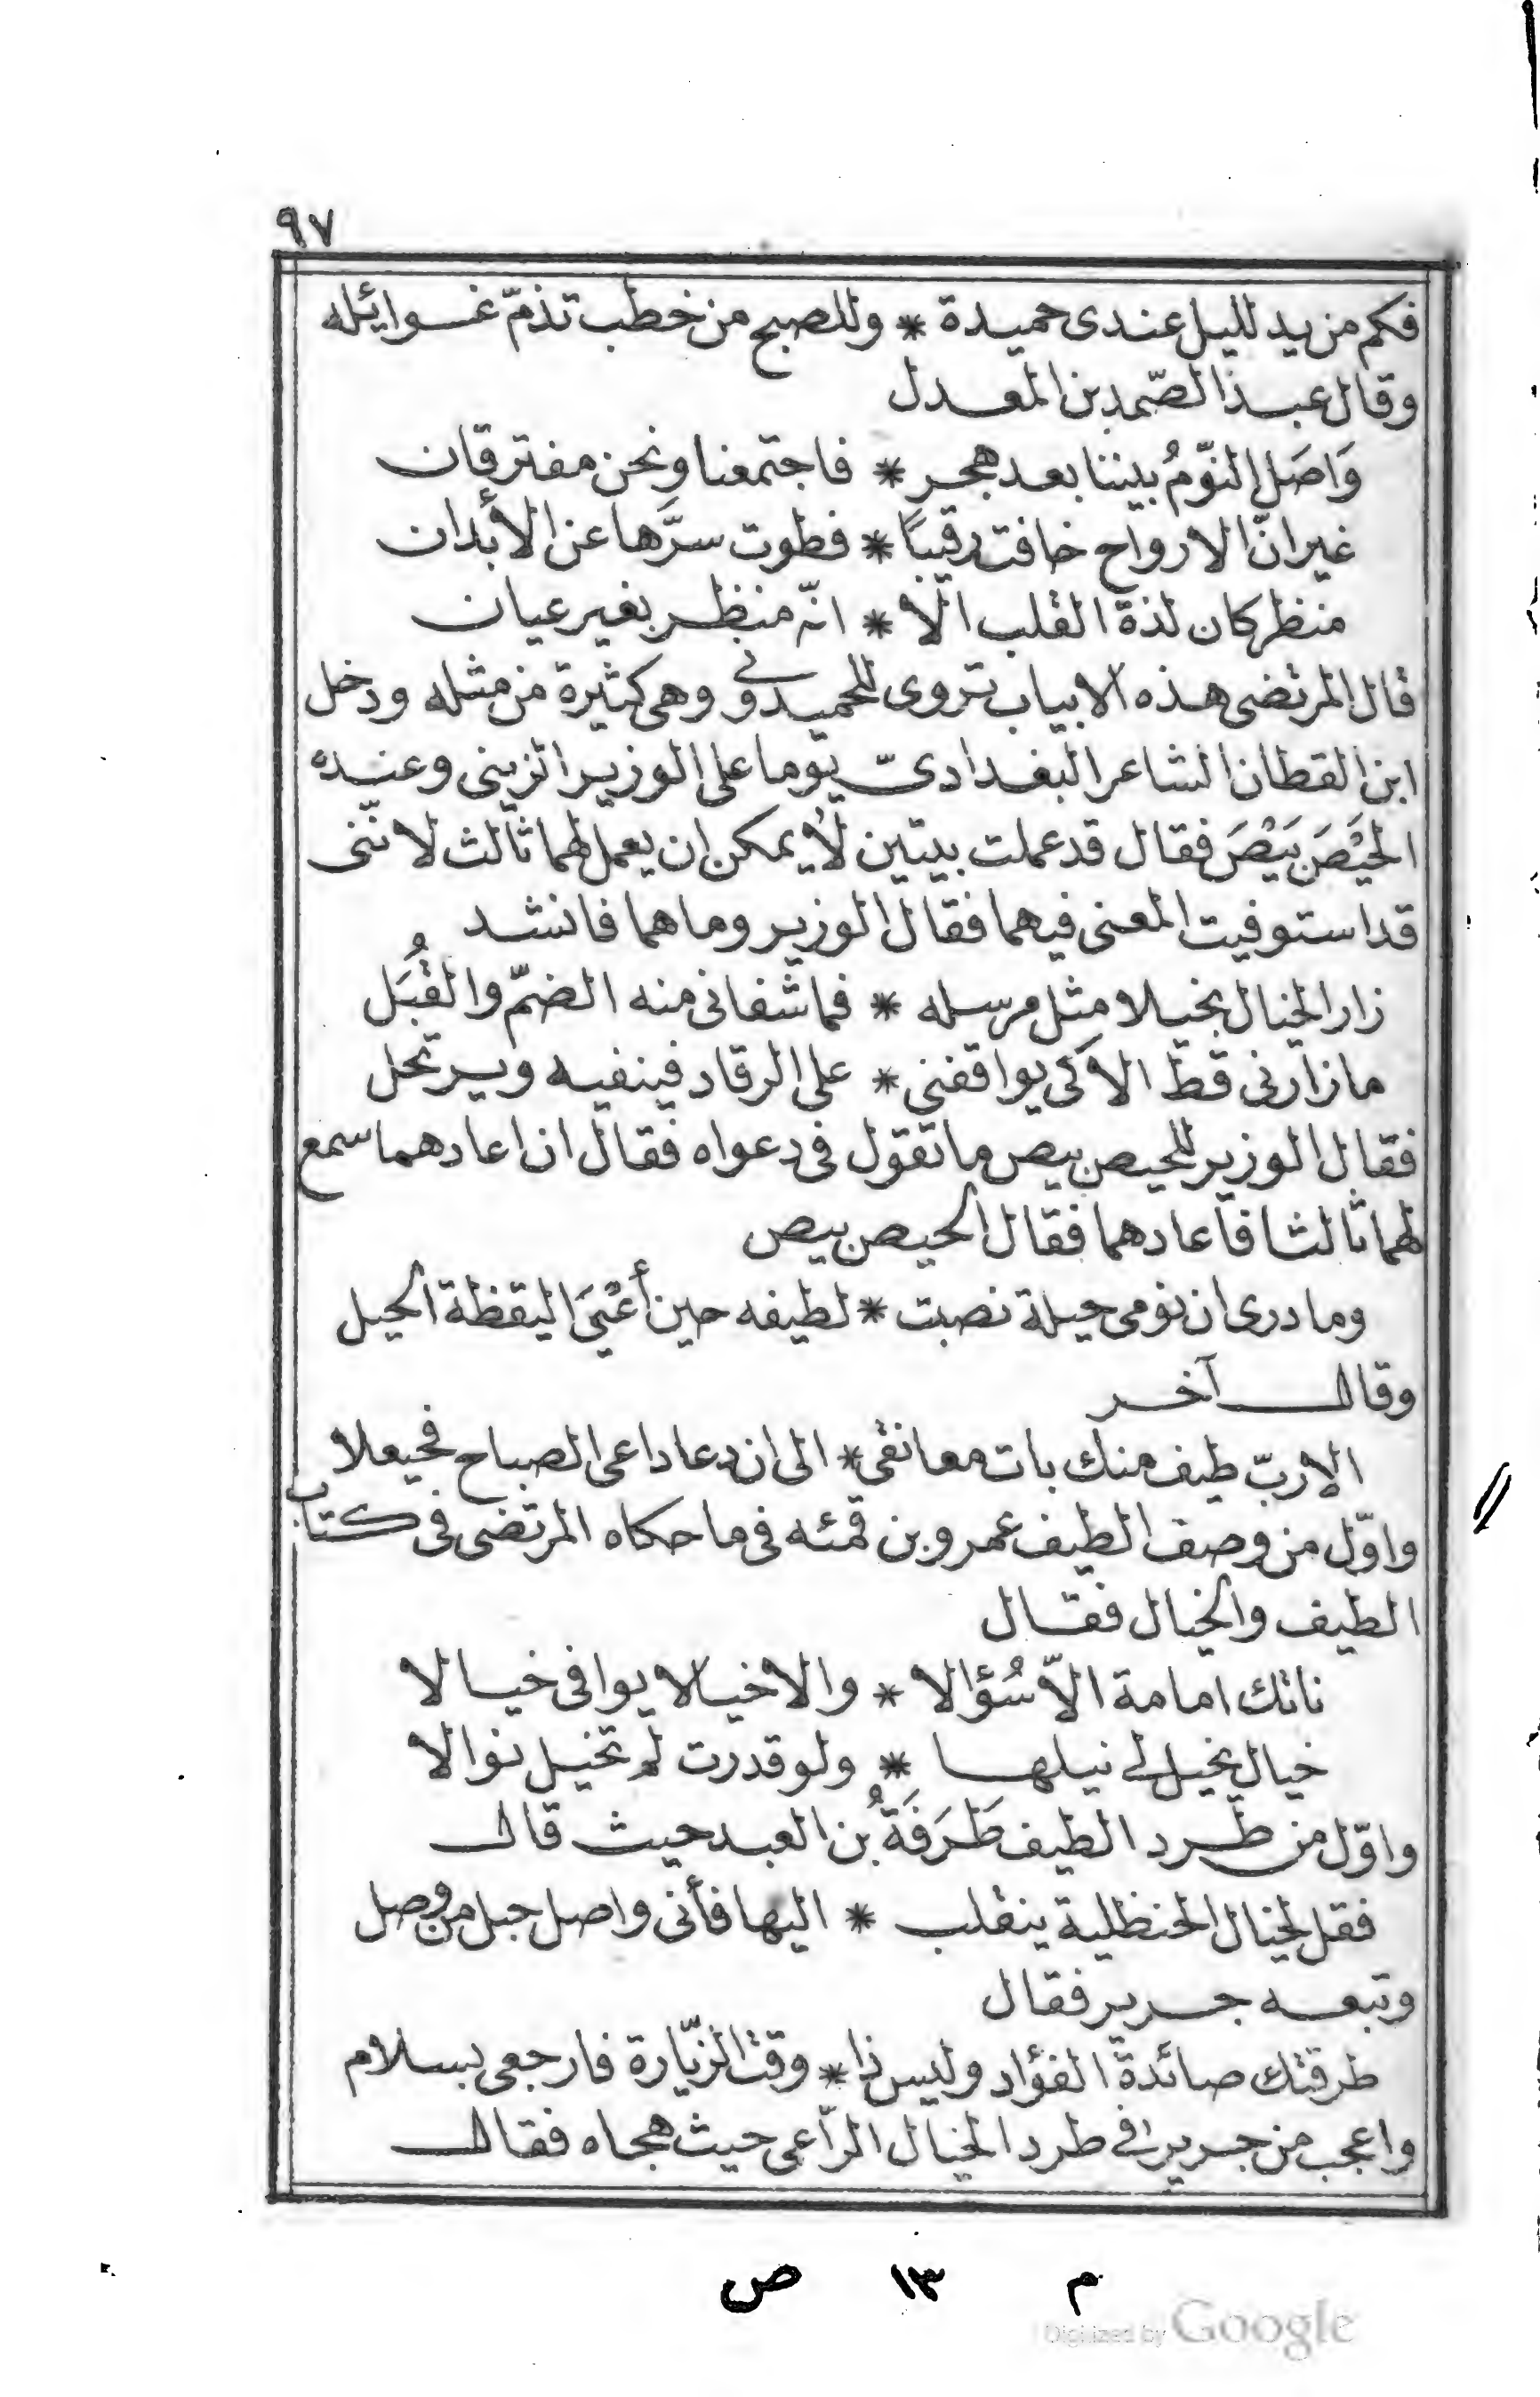 ٩٧
فكم من يد لليل عندى حميدة * وللصبح من خطب تذمّ غوائله
وقال عبد الصّمد بن المعدل
وَاصَل النّومُ بيننا بعد هجر * فاجتمعنا ونحن مفترقان
غير انّ الارواح خافت رقيبًا * فطوت سرَّها عن الأبدان
منظر كان لذة القلب الّا * انّه منظر بغير عيان
قال المرتضى هذه الابيات تروى للحميدونى وهى كثيرة من مثله ودخل
ابن القطان الشاعر البغدادىّ يوما على الوزير الزينى وعنده
الحَيْصَ بَيْصَ فقال قد عملت بيتين لا يمكن ان يعمل لهما ثالث لانّنى
قد استوفيت المعنى فيهما فقال الوزير وما هما فانشد
زار الخيال بخيلا مثل مرسله * فما شفانى منه الضمّ والقُبَلُ
ما زارنى قط الا كى يواقفنى * على الرقاد فينفيه ويرتحل
فقال الوزير للحيص بيص ما تقول فى دعواه فقال ان اعادهما سمع
لهما ثالثا فاعادهما فقال الحيص بيص
وما درى ان نومى حيلة نصبت * لطيفه حين أعْيَى اليقظة الحيل
وقال آخر
الا ربّ طيف منك بات معانقى * الى ان دعا داعى الصباح فحيعلا
واوّل من وصف الطيف عمرو بن قمئه فى ما حكاه المرتضى فى كتاب
الطيف والخيال فقال
نائك امامة الّا سُؤالا * والا خيالا يوافى خيالا
خيال يخيل لى نيلها * ولو قدرت لم تخيل نوالا
واوّل من طرد الطيف طَرَفَةُ بن العبد حيث قال
فقل لخيال الحنظلية ينقلب * اليها فأنى واصل حبل من وصل
وتبعه جرير فقال
طرقتك صائدة الفؤاد وليس ذا * وقت الزّيارة فارجعى بسلام
واعجب من جرير فى طرد الخيال الرّاعى حيث هجاه فقال
م ١٣ ص
Digitized by Google